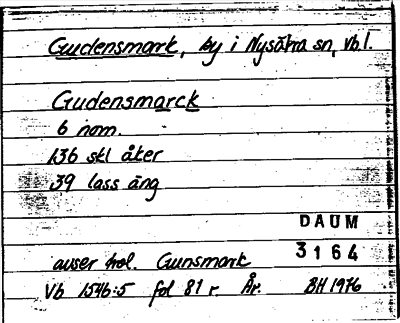 Gudensmark, by i Nysätra sn, Vb l.
Gudensmarck
6 nom.
136 skl åker
39 lass äng
DAUM
3164
avser trol. Gunsmark
Vb 1546:5 fol 81 r. År. BH 1976